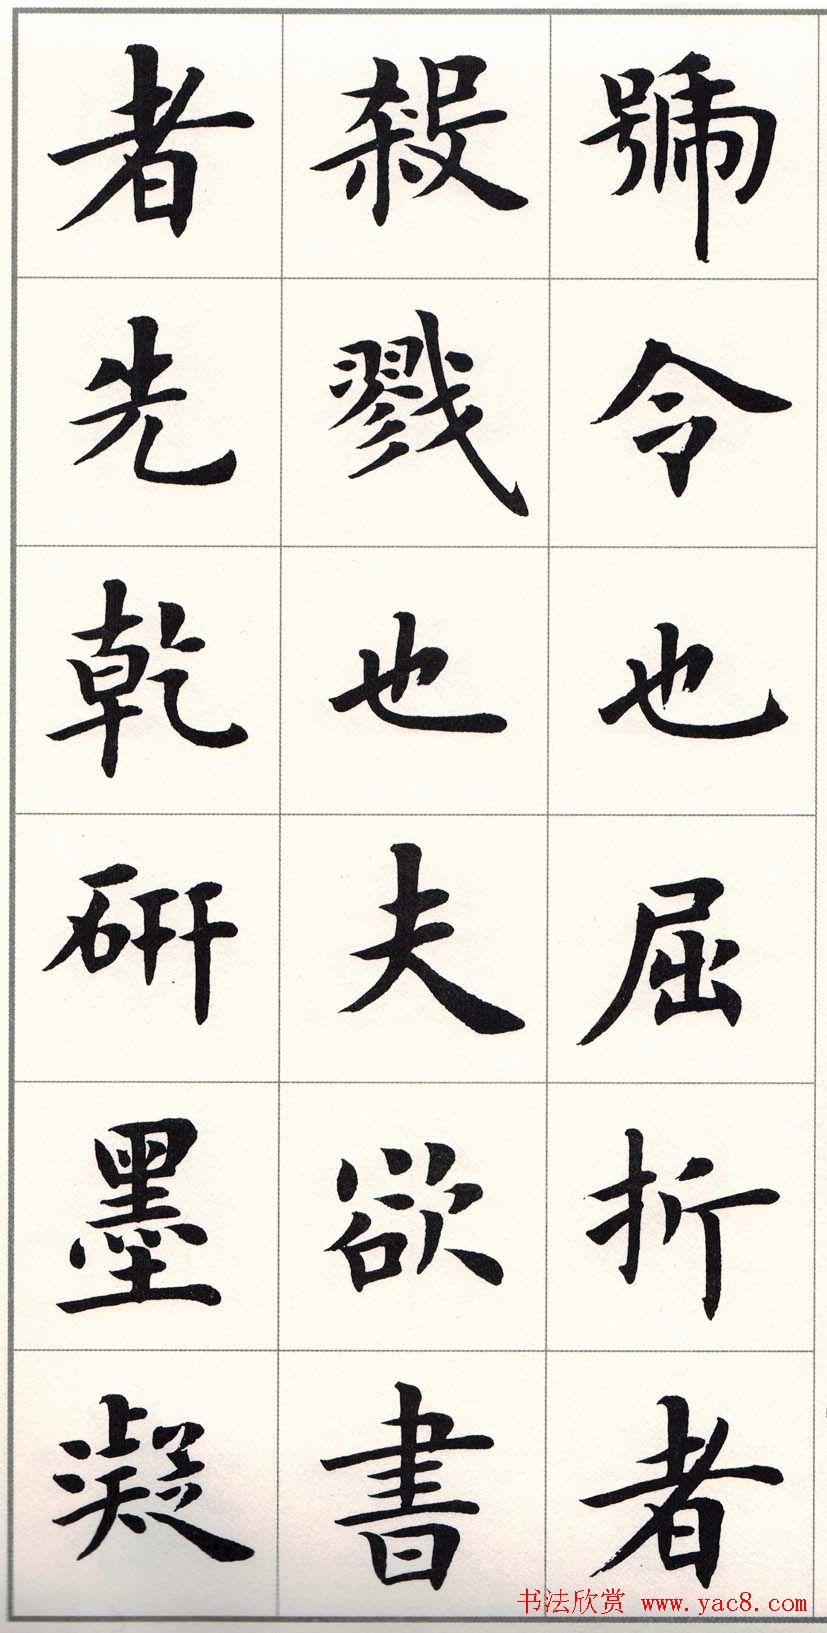 號令也屈折者
殺戮也夫欲書
者先乾研墨凝
书法欣赏 www.yac8.com